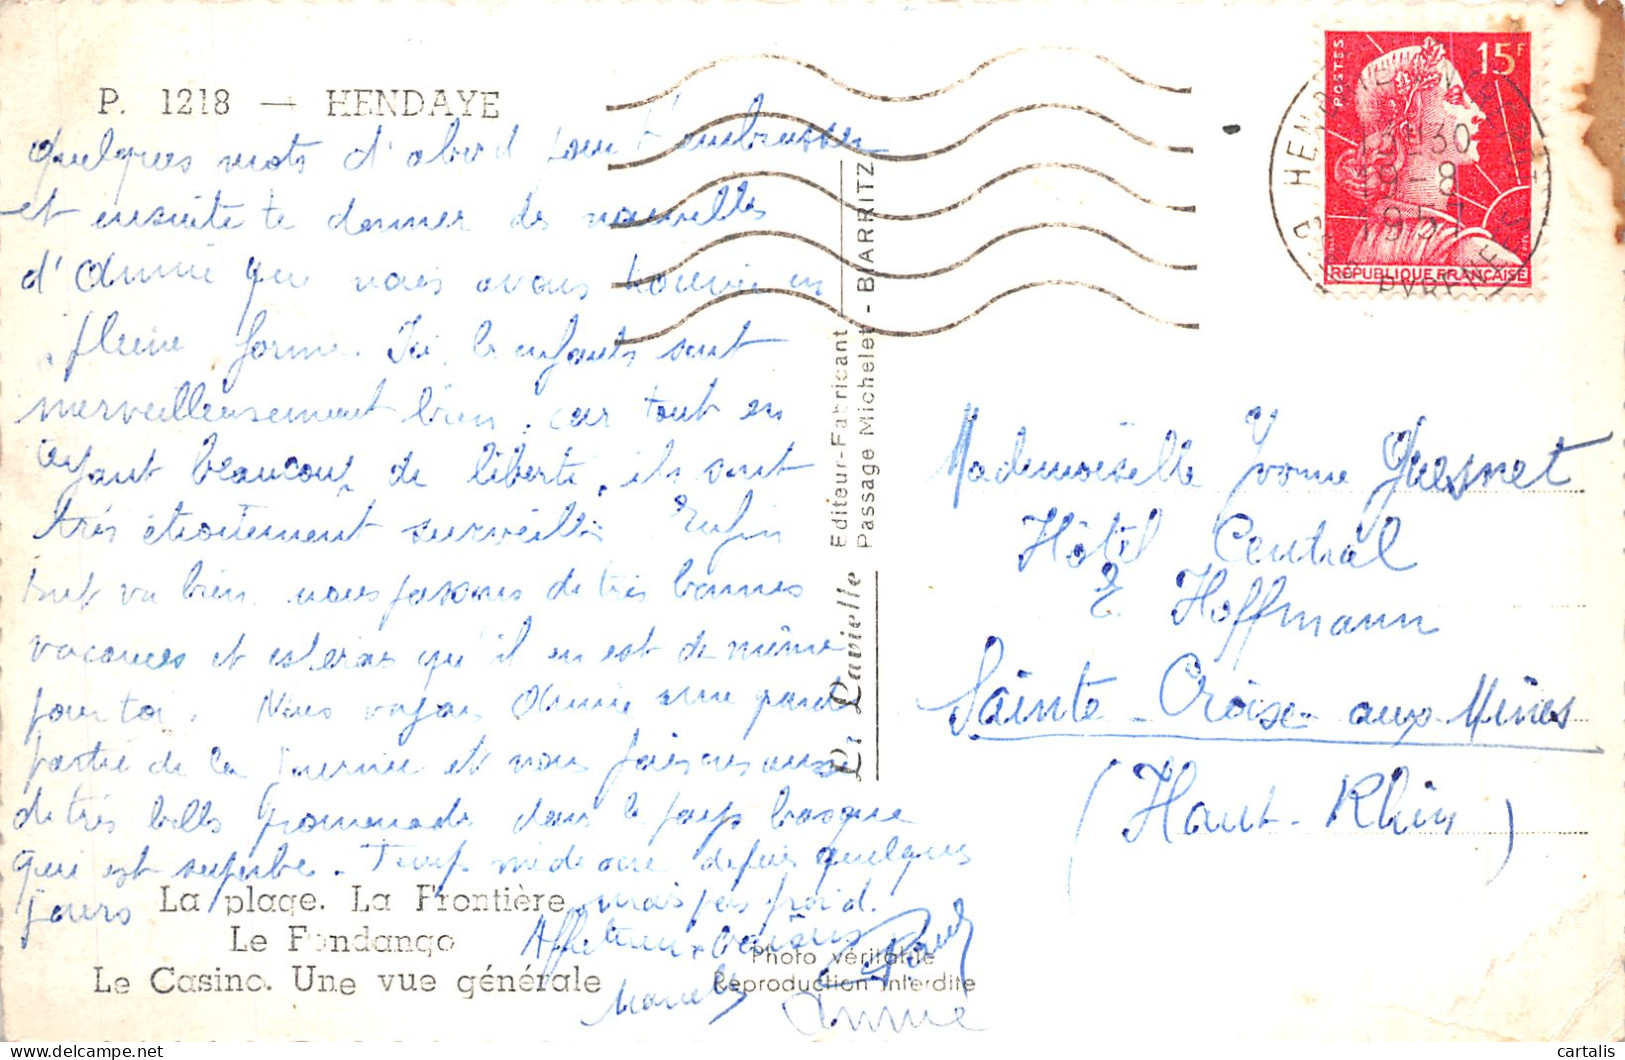 P. 1218 — HENDAYE
Quelques mots d'abord pour t'embrasser
et ensuite te donner des nouvelles
d'Annie que nous avons trouvée en
pleine forme. Ici, les enfants sont
merveilleusement bien, car tout en
ayant beaucoup de liberté, ils sont
très étroitement surveillés. Enfin
tout va bien nous passons de très bonnes
vacances et espérons qu'il en est de même
pour toi. Nous voyons Annie une grande
partie de la journée et nous faisons aussi
de très belles promenades dans le pays basque
qui est superbe. Temps médiocre depuis quelques
jours mais pas froid.
Affectueux baisers
Paul
Marcelle
Annie
La plage. La Frontière.
Le Fandango
Le Casino. Une vue générale
Photo véritable
Reproduction interdite
Editeur-Fabricant
Passage Michelet - BIARRITZ
P. Lavielle
POSTES
15F
13H30
19-8
1957
REPUBLIQUE FRANÇAISE
Mademoiselle Yvonne Quesnet
Hôtel Central
E. Hoffmann
Sainte-Croix-aux-Mines
(Haut-Rhin)
cartalis